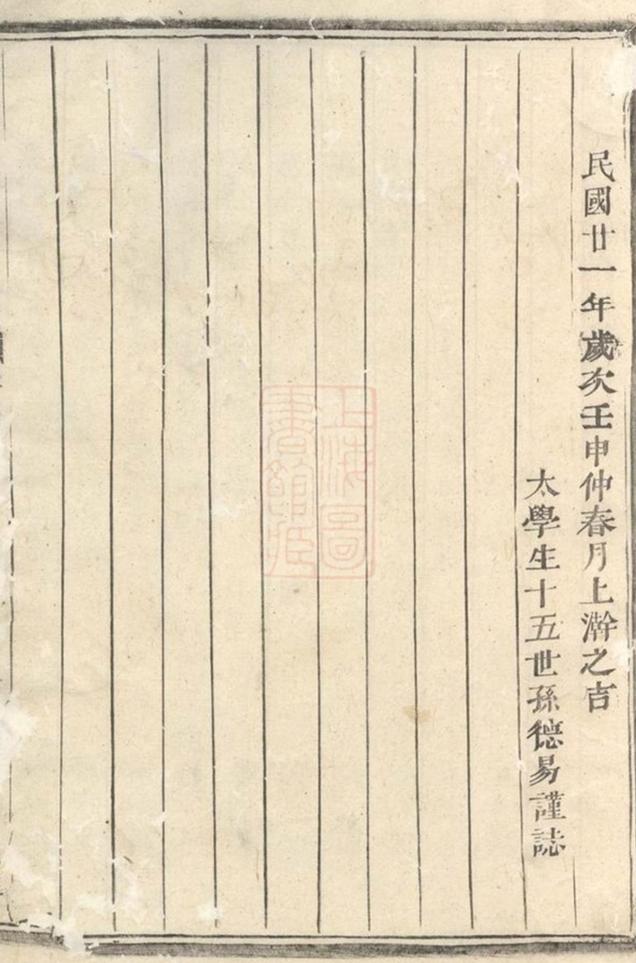 民國廿一年歲次壬申仲春月上澣之吉
太學生十五世孫德易謹誌
上海圖
書館藏